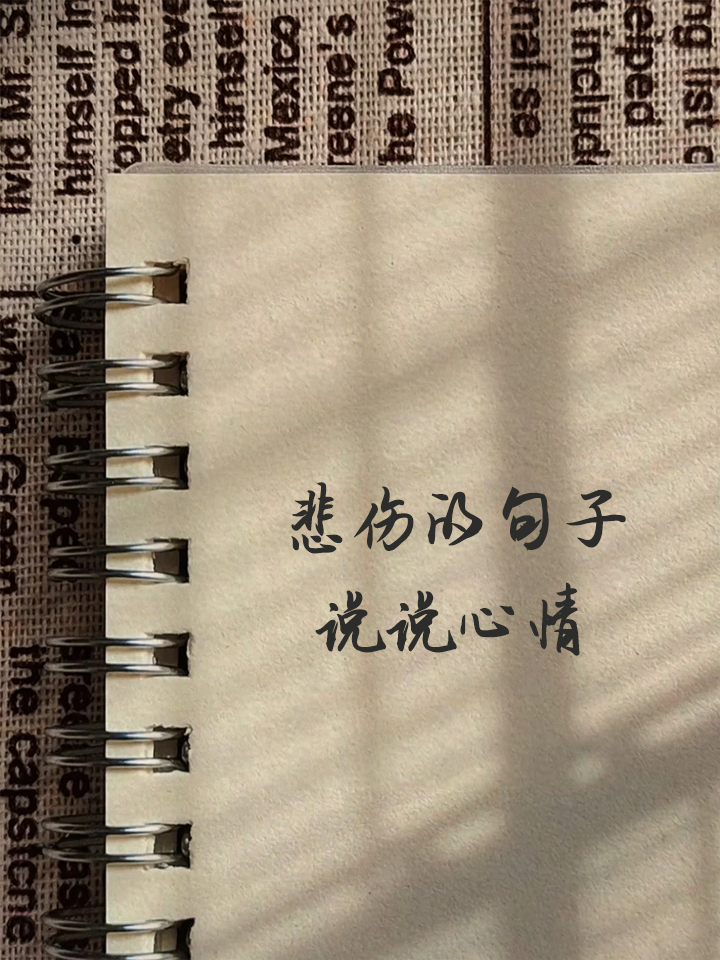 悲伤的句子
说说心情
livid Mr.
himself
opped
etry eve
himself
Mexico
he Pow
nal se
t includ
eiped
ng list
when Green
the capstone